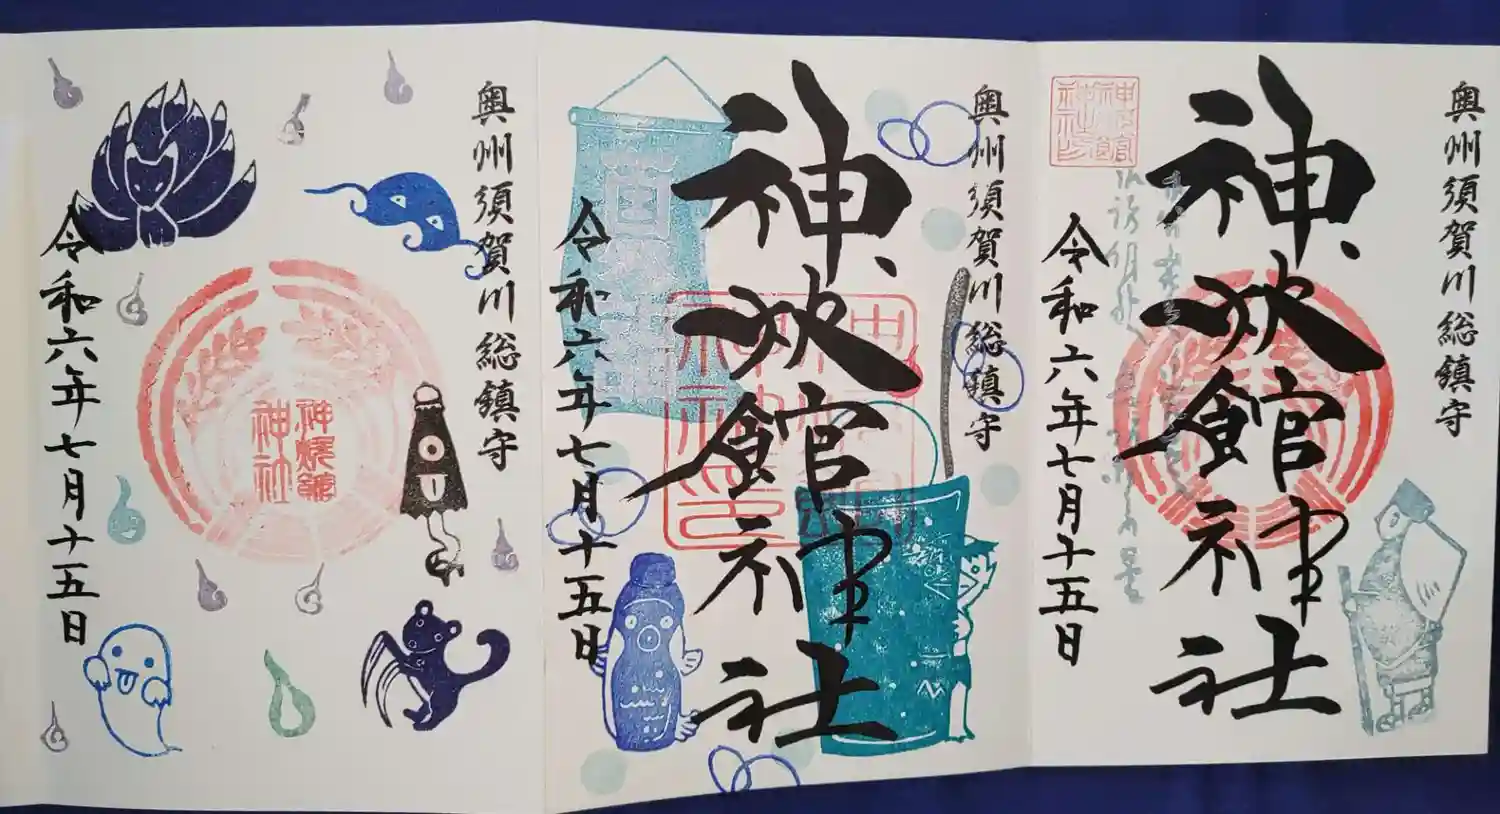 奥州須賀川総鎮守
神炊館神社
令和六年七月十五日
奥州須賀川総鎮守
神炊館神社
令和六年七月十五日
奥州須賀川総鎮守
神炊館
神社
令和六年七月十五日